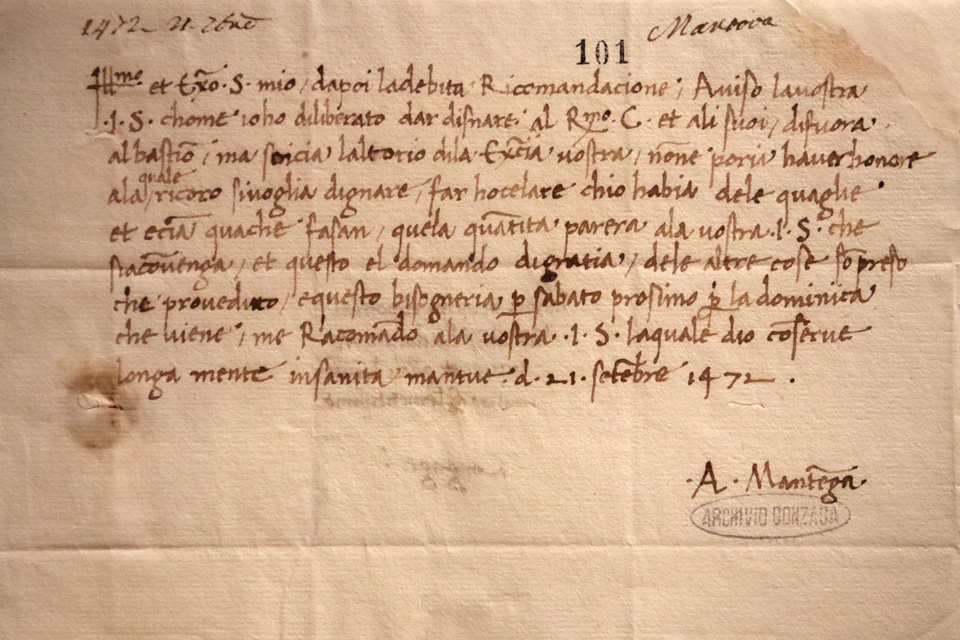 1472 21 7bre
Mantova
101
Illmo et Exo. S. mio, dapoi ladebita Ricomandacione, Aviso lavostra
.I. S. chome ioho diliberato dar disnare al Rmo. C. et ali suoi, difuora
albastio, ma sencia laltorio dila Excia vostra, none poria haverhonore
quale
ala ricoro sivoglia dignare, far hocelare chio habia dele quaglie
et ecia quache fasan, quela quatita parera ala vostra .I. S. che
siacovenga, et questo el domando digratia, dele altre cose fo presto
che proveduto, equesto bisogneria p sabato prosimo p la dominica
che viene, me Racomado ala vostra .I. S. laquale dio coserve
longa mente insanita mantue. d. 21. setebre 1472.
.A. Mantega.
ARCHIVIO GONZAGA